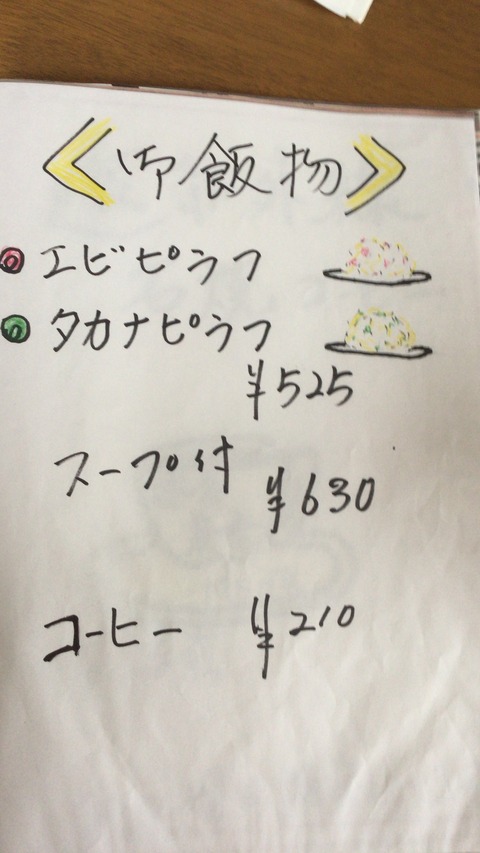 《御飯物》
エビピラフ
タカナピラフ
¥525
スープ付 ¥630
コーヒー ¥210